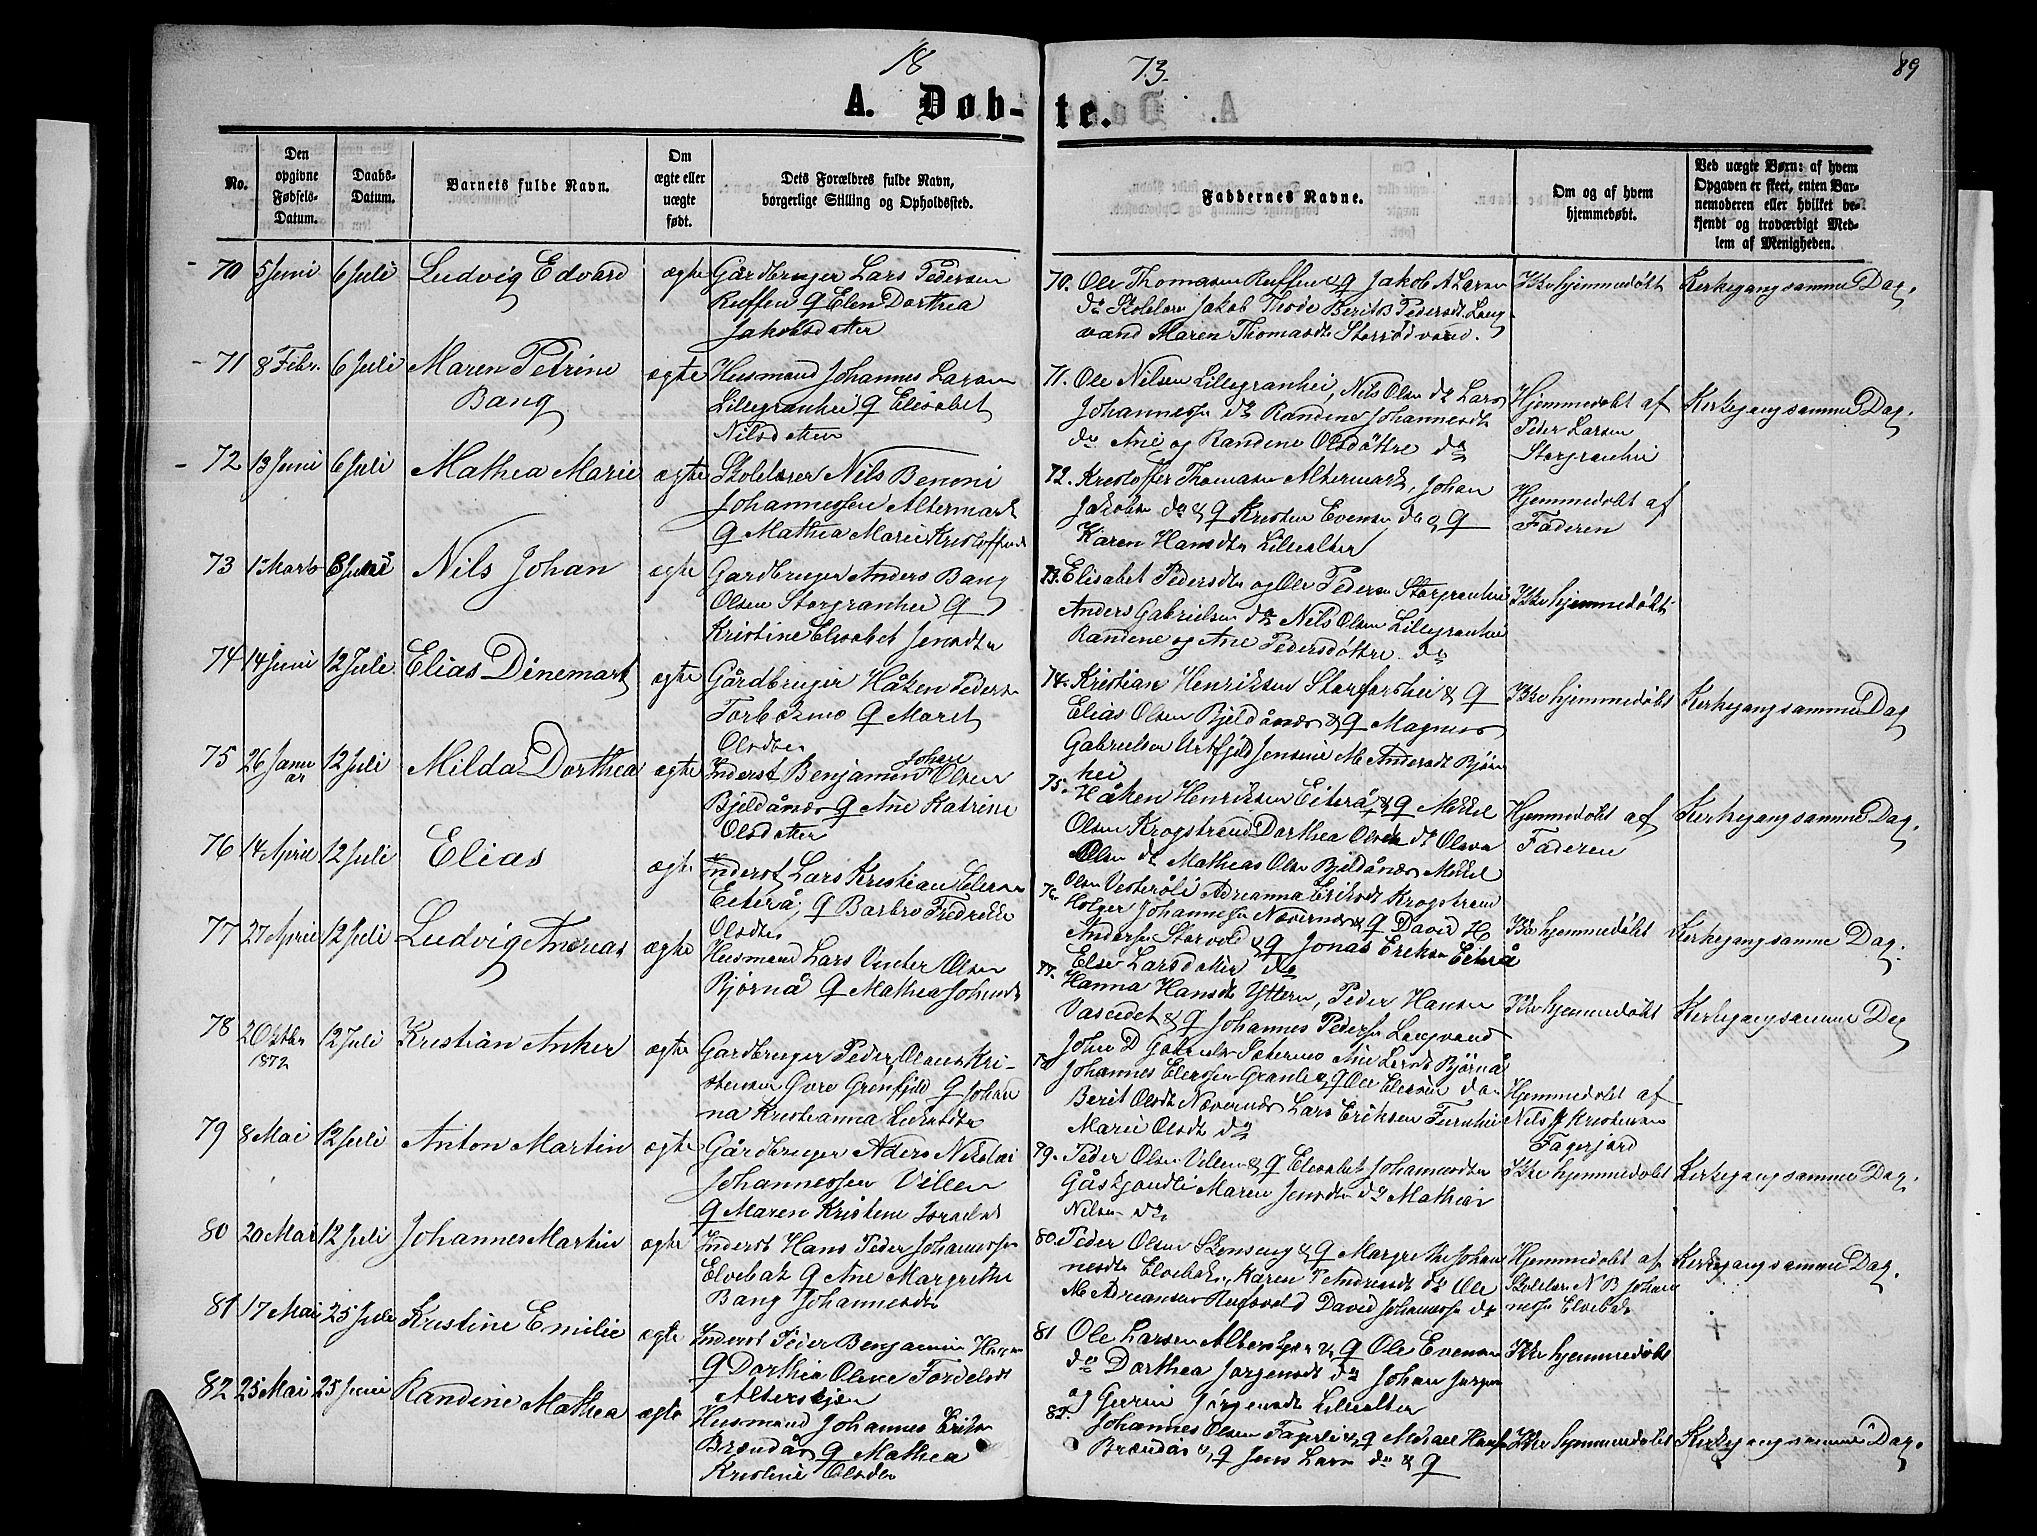 18
73.
89
A. Døb-
te.
No.
Den
opgivne
Fødsels-
Datum.
Daabs-
Datum.
Barnets fulde Navn.
Om
ægte eller
uægte
født.
Dets Forældres fulde Navn,
borgerlige Stilling og Opholdssted.
Faddernes Navne.
Om og af hvem
hjemmedøbt.
Ved uægte Børn: af hvem
Opgaven er skeet, enten Bar-
nemoderen eller hvilket be-
kjendt og troværdigt Med-
lem af Menigheden.
70 5 Juni 6 Juli Ludvig Edvard ægte Gårdbruger Lars Pedersen
Ruffen & Elen Dorthea
Jakobsdatter
70. Ole Thomasen Ruffen & Q Jakob A Larsen
do Skolelærer Jakob Berit B Pedersdt Lang
vand Maren Thomasdt Storrødvand.
Ikke hjemmedøbt
Kirkegang samme Dag.
71 8 Febr. 6 Juli Maren Petrine
Bang
ægte Husmand Johannes Larsen
Lillegranhei Q Elisabet
Nilsdatter
71. Ole Nilsen Lillegranhei, Nils Olsen do Lars
Johannessen do Randine Johannesdt
do Ane og Randine Olsdøttre do
Hjemmedøbt af
Peder Larsen
Storgranhei
Kirkegang samme Dag.
72 13 Juni 6 Juli Mathea Marie ægte Skolelærer Nils Benoni
Johannessen Altermark
Q Mathea Marie Kristoffersdt
72. Kristoffer Thomasen Altermark, Johan
Jakobsen do & Q Kristen Evensen do & Q
Karen Hansdtr Lillealter
Hjemmedøbt af
Faderen
73 1 Marts 6 Juli Nils Johan ægte Gardbruger Anders Bang
Olsen Storgranhei Q
Kristine Elisabet Jensdtr
73. Elisabet Pedersdtr og Ole Pedersen Storgranhei
Anders Gabrielsen do Nils Olsen Lillegranhei
Randine og Ane Pedersdøttre do
Ikke hjemmedøbt
74 14 Juni 12 Juli. Elias Dinemart ægte Gårdbruger Håken Pedersen
Forbekmo Q Maret
Olsdtr
74. Kristian Henriksen Storforshei & Q
Elias Olsen Bjeldånes & Q Magnus
Gabrielsen Urtfjeld Jensine M. Andersdt Bjørn
hei
Ikke hjemmedøbt
Kirkegang samme Dag
75 26 Janu
ar
12 Juli Milda Dorthea ægte Inderst Benjamin Johan Olsen
Bjeldånes Q Ane Katrine
Olsdatter
75. Håken Henriksen Eiterå & Q Mikkel
Olsen Krogstrand Dorthea Olsdt do Olava
Olsen do Mathias Olsen Bjeldånes Mikkel
Olsen Vesteråli Adrianna Eriksdt Krogstrand
Hjemmedøbt af
Faderen
Kirkegang samme Dag.
76 14 April 12 Juli Elias ægte Inderst Lars Kristian Elersen
Eiterå, Q Barbro Fredrikke
Olsdtr
76. Holger Johannesen Nævernes & Q David H
Andersen Storvold & Q Jonas Eriksen Eiterå
Else Larsdatter do
Ikke hjemmedøbt
Kirkegang samme Dag.
77 27 April 12 Juli Ludvig Andreas ægte Husmand Lars Vinter Olsen
Bjørnå Q Mathea Johansdt
77. Hanna Hansdt Yttern, Peder Hansen
& Q Johannes Pedersen Langvand
John D Gabrielsen Sætermo Ane Larsdt Bjørnå
Ikke hjemmedøbt
Kirkegang samme Dag
78 2 Oktbr
1872
12 Juli Kristian Anker ægte Gardbruger Peder Olaus Kri-
stensen Øvre Grønfjeld Q Johan
na Kristianna Larsdtr
78. Johannes Elersen Granli & Q Ole Elersen do
Berit Olsdt Nævernes Lars Eriksen Furuhei
Marie Olsdt do
Hjemmedøbt af
Nils J Kristensen
Fagerjord
79 8 Mai 12 Juli Anton Martin ægte Gårdbruger Aders Nikolai
Johannessen Villen
Q Maren Kristine Israelsdt
79. Peder Olsen Villen & Q Elisabet Johannesdtr
Gåskjønli Maren Jensdtr do Mathias
Nilsen do
Ikke hjemmedøbt
Kirkegang samme Dag.
80 20 Mai 12 Juli Johannes Martin ægte Inderst Hans Peder Johannessen
Elvebak Q Ane Margrethe
Bang Johannesdtr
80. Peder Olsen Skonseng & Q Margrethe Johan
nesdtr Elvebak, Karen P Andreasdt do Ole
M Adriansen Rufsvold David Johannessen do
Hjemmedøbt af
Skolelær N B Johan
nessen Elvebak
Kirkegang samme Dag.
81 17 Mai 25 Juli Kristine Emilie ægte Inderst Peder Benjamin Hansen
Q Dorthea Oline Fordelsdt
Alterskjær
81 Ole Larsen Alterskjær & Q Ole Evensen
do Dorthea Jørgensdt do Johan Jørgen
og Gurine Jørgensdt Lillealter
Ikke hjemmedøbt
+
82 25 Mai 25 Juni Randine Mathea ægte Husmand Johannes Eriksen
Brændås Q Mathea
Kristine Olsdtr
82. Johannes Olsen Fagerli & Q Mikael Hansen
Brændås & Q Jens Larsen do & Q
Ikke hjemmedøbt
+
Kirkegang samme Dag.